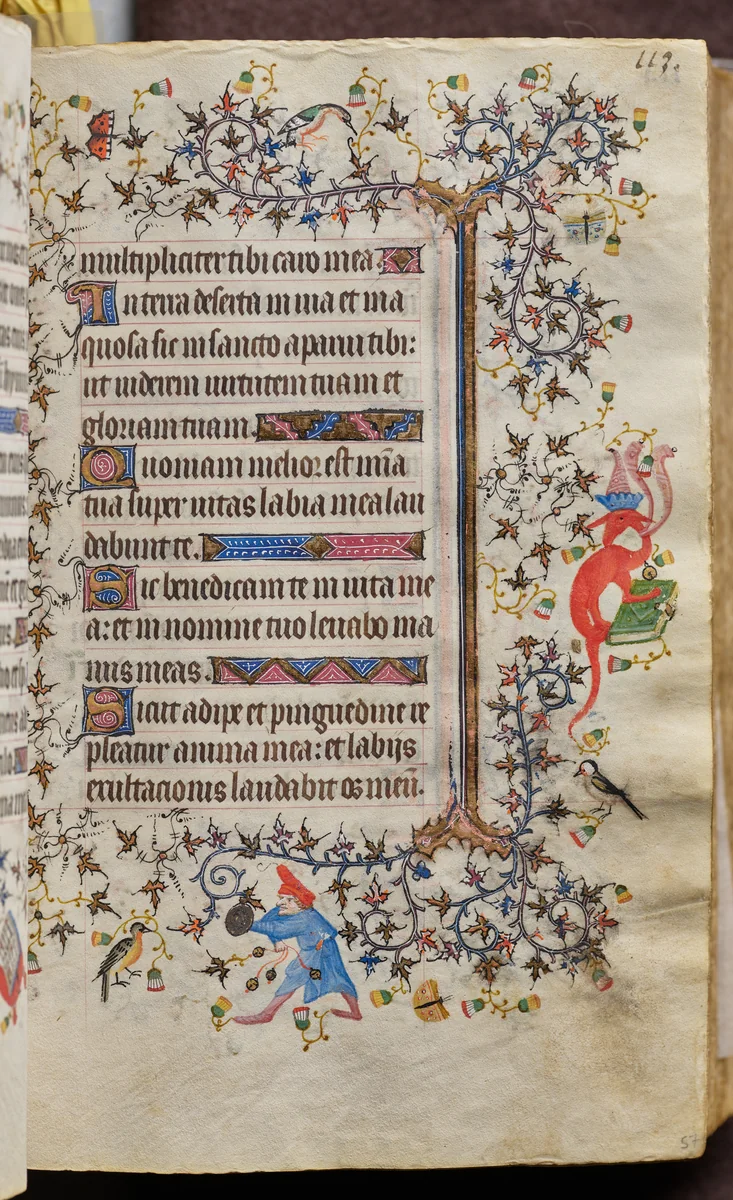 113.
multipliciter tibi caro mea.
In terra deserta in uia et ina
quosa sic in sancto aparui tibi:
ut uiderem uirtutem tuam et
gloriam tuam.
Quoniam melior est mīa
tua super uitas labia mea lau
dabunt te.
Sic benedicam te in uita me
a: et in nomine tuo leuabo ma
nus meas.
Sicut adipe et pinguedine re
pleatur anima mea: et labijs
exultacionis laudabit os meū.
57